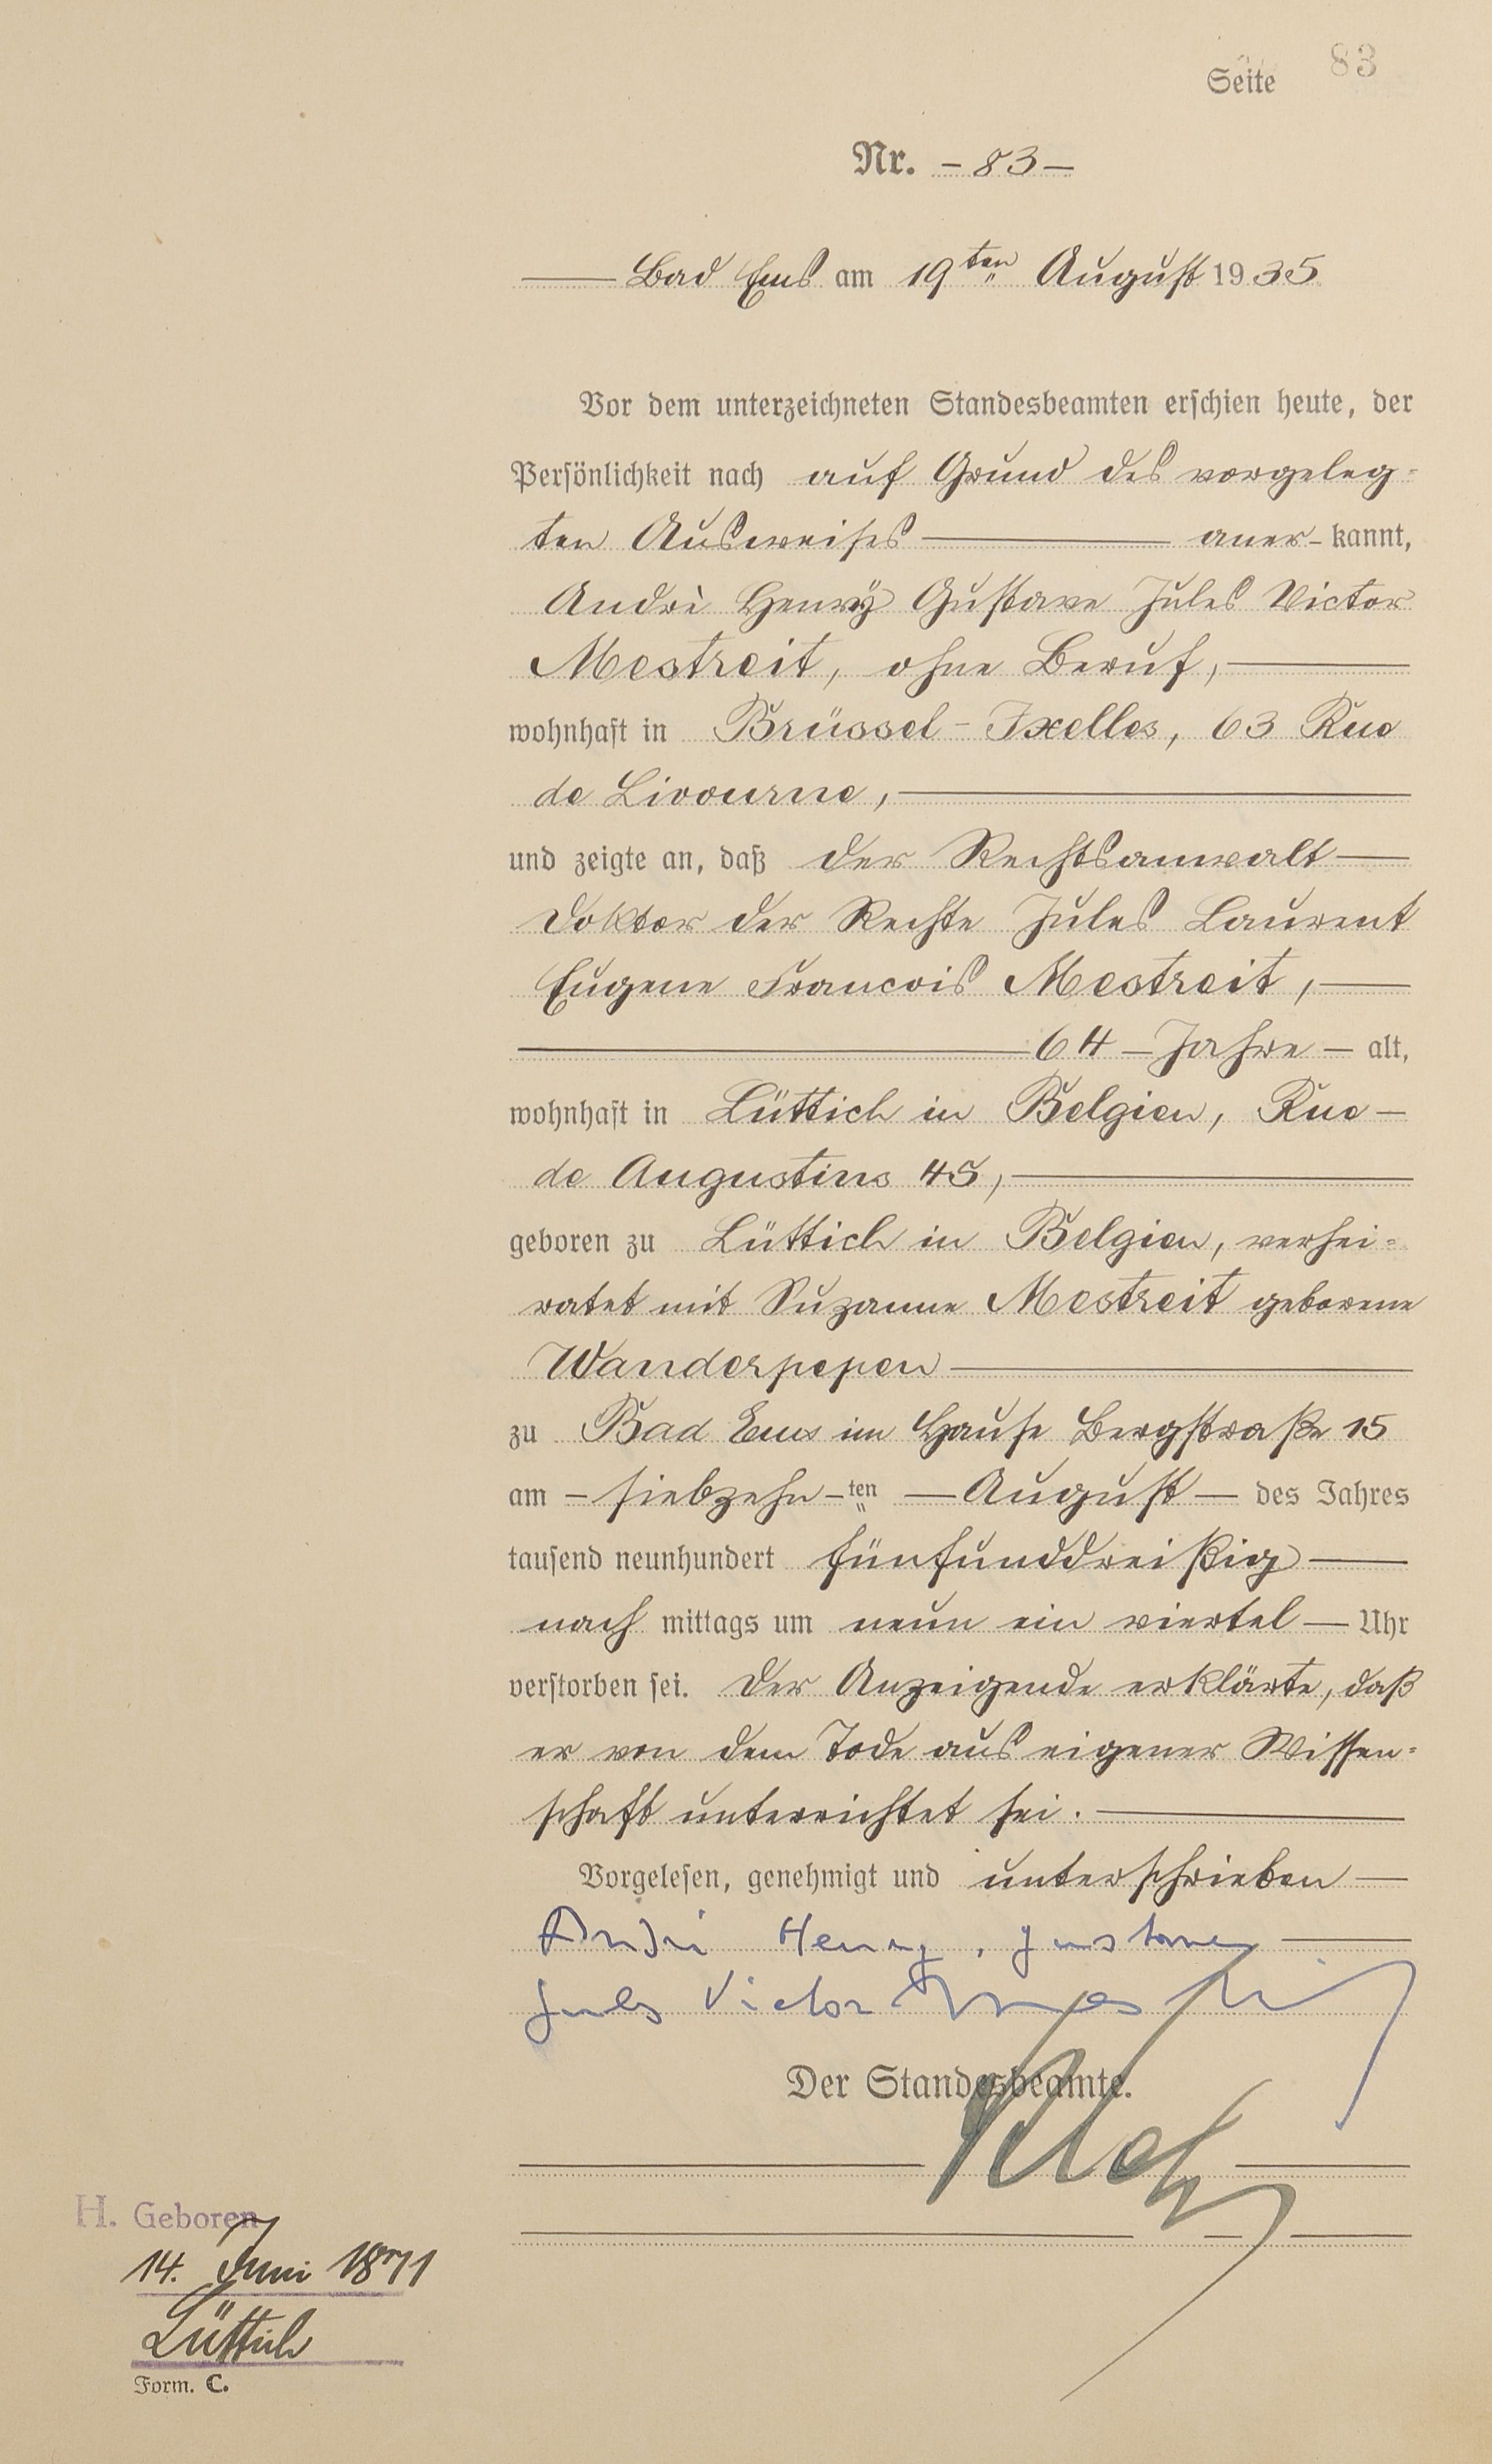 Seite 83
Nr. - 83 -
Bad Ems am 19ten August 1935
Vor dem unterzeichneten Standesbeamten erschien heute, der
Persönlichkeit nach auf Grund des vorgeleg=
ten Ausweises aner- kannt,
Andrè Henry Gustave Jules Victor
Mestreit, ohne Beruf,
wohnhaft in Brüssel - Ixelles, 63 Rue
de Livourne,
und zeigte an, daß der Rechtsanwalt
Doktor der Rechte Jules Laurent
Eugene Francois Mestreit,
64 - Jahre - alt,
wohnhaft in Lüttich in Belgien, Rue -
de Augustins 45,
geboren zu Lüttich in Belgien, verhei=
ratet mit Suzanne Mestreit geborene
Wanderpepen
zu Bad Ems im Hause Bergstraße 15
am - siebzehn - ten - August - des Jahres
tausend neunhundert fünfunddreißig
nach mittags um neun ein viertel - Uhr
verstorben sei. Der Anzeigende erklärte, daß
er von dem Tode aus eigener Wissen=
schaft unterrichtet sei.
Vorgelesen, genehmigt und unterschrieben
André Henry, Gustave
Jules Victor
Der Standesbeamte.
H. Geboren
14. Juni 1871
Lüttich
Form. C.